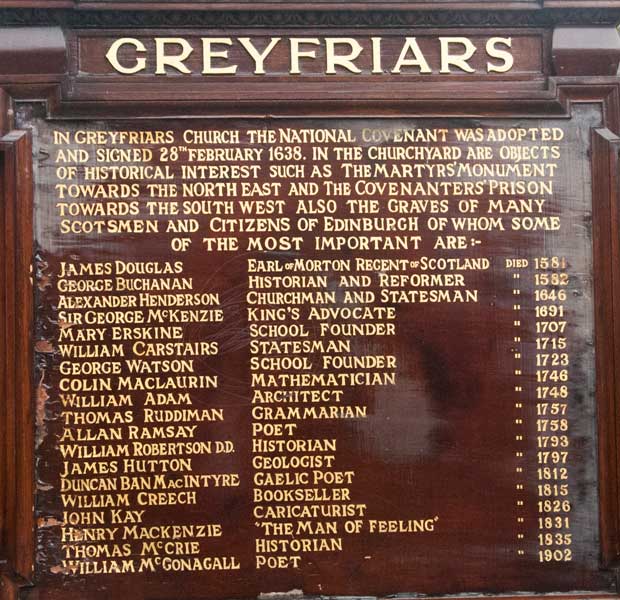 GREYFRIARS
IN GREYFRIARS CHURCH THE NATIONAL COVENANT WAS ADOPTED
AND SIGNED 28TH FEBRUARY 1638. IN THE CHURCHYARD ARE OBJECTS
OF HISTORICAL INTEREST SUCH AS THE MARTYRS' MONUMENT
TOWARDS THE NORTH EAST AND THE COVENANTERS' PRISON
TOWARDS THE SOUTH WEST ALSO THE GRAVES OF MANY
SCOTSMEN AND CITIZENS OF EDINBURGH OF WHOM SOME
OF THE MOST IMPORTANT ARE:-
JAMES DOUGLAS EARL OF MORTON REGENT OF SCOTLAND DIED 1581
GEORGE BUCHANAN HISTORIAN AND REFORMER " 1582
ALEXANDER HENDERSON CHURCHMAN AND STATESMAN " 1646
SIR GEORGE McKENZIE KING'S ADVOCATE " 1691
MARY ERSKINE SCHOOL FOUNDER " 1707
WILLIAM CARSTAIRS STATESMAN " 1715
GEORGE WATSON SCHOOL FOUNDER " 1723
COLIN MACLAURIN MATHEMATICIAN " 1746
WILLIAM ADAM ARCHITECT " 1748
THOMAS RUDDIMAN GRAMMARIAN " 1757
ALLAN RAMSAY POET " 1758
WILLIAM ROBERTSON D.D. HISTORIAN " 1793
JAMES HUTTON GEOLOGIST " 1797
DUNCAN BAN MACINTYRE GAELIC POET " 1812
WILLIAM CREECH BOOKSELLER " 1815
JOHN KAY CARICATURIST " 1826
HENRY MACKENZIE "THE MAN OF FEELING" " 1831
THOMAS McCRIE HISTORIAN " 1835
WILLIAM McGONAGALL POET " 1902